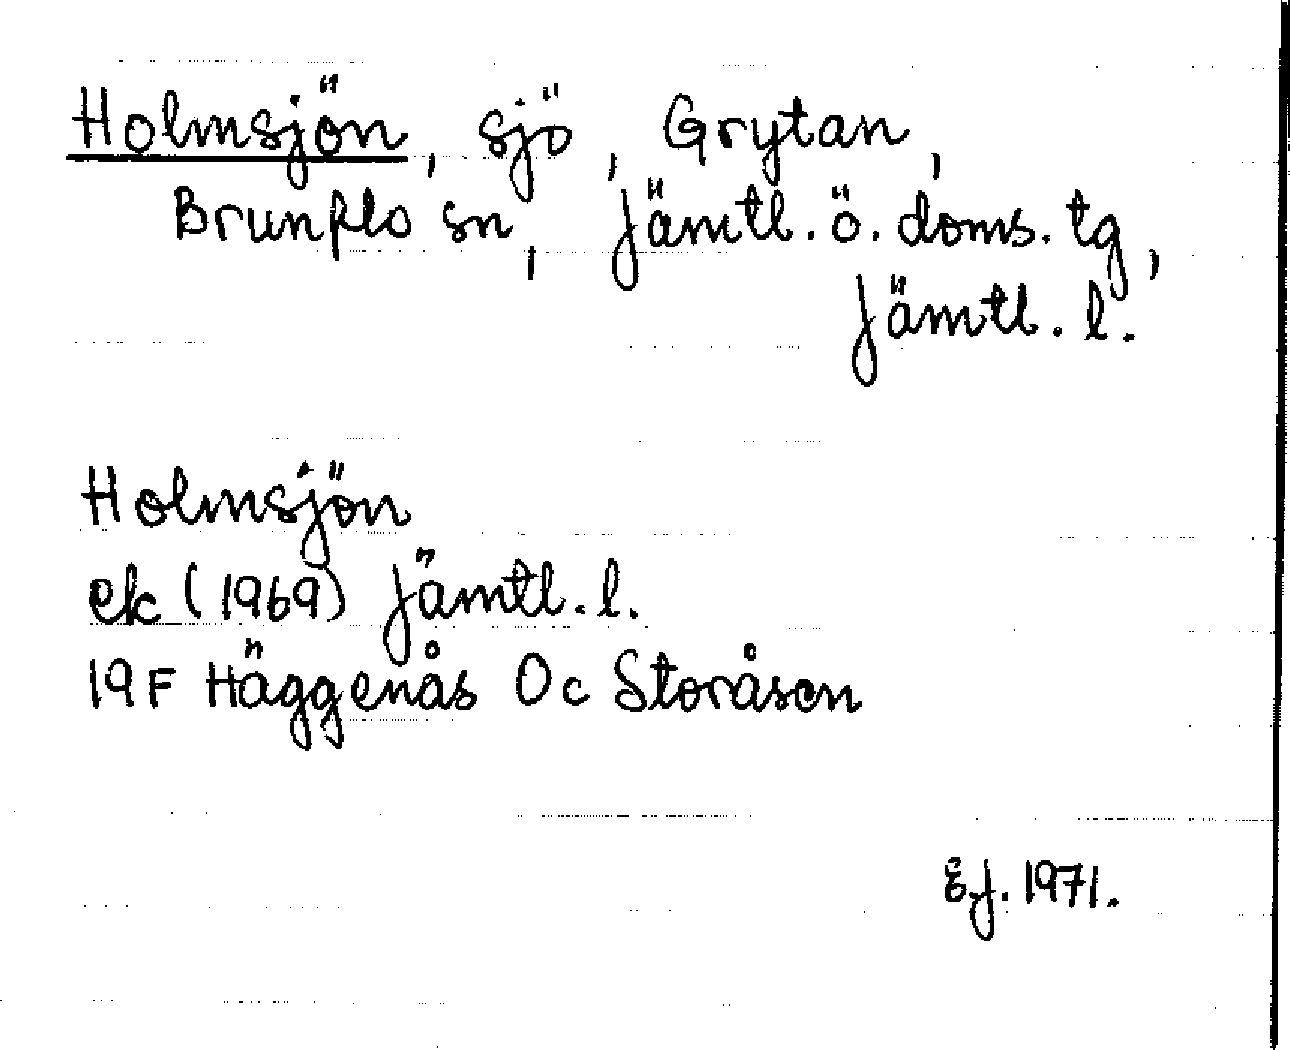 Holmsjön, sjö, Grytan,
Brunflo sn, Jämtl. ö. doms. tg,
Jämtl. l.
Holmsjön
ek (1969) Jämtl. l.
19 F Häggenås 0 c Storåsen
E.J. 1971.